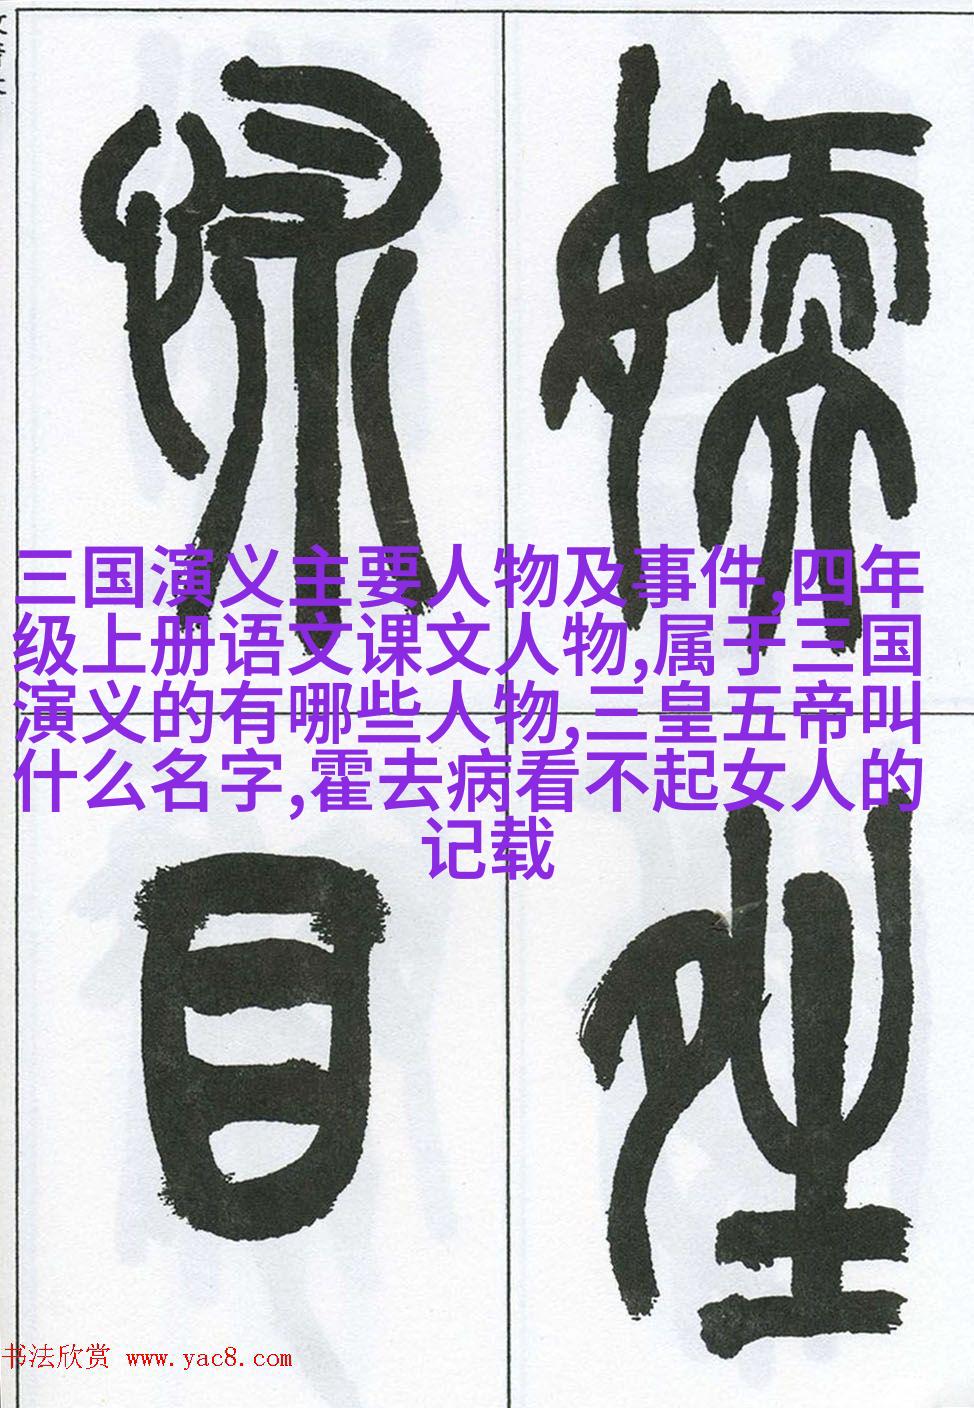 三国演义主要人物及事件,四年
级上册语文课文人物,属于三国
演义的有哪些人物,三皇五帝叫
什么名字,霍去病看不起女人的
记载
目
书法欣赏 www.yac8.com